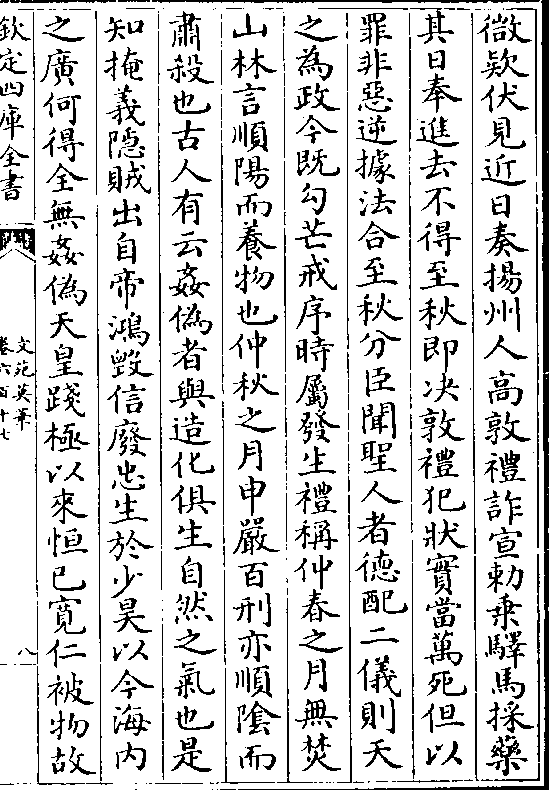 微欵伏見近日奏揚州人高敦禮詐宣勅乗驛馬採藥
其日奉進去不得至秋即决敦禮犯狀實當萬死但以
罪非惡逆據法合至秋分臣聞聖人者徳配二儀則天
之為政今既勾芒戒序時屬發生禮稱仲春之月無焚
山林言順陽而養物也仲秋之月申嚴百刑亦順隂而
肅殺也古人有云姦偽者與造化俱生自然之氣也是
知掩義隠賊出自帝鴻毀信廢忠生於少昊以今海内
之廣何得全無姦偽天皇踐極以來恒已寛仁被物故
欽定四庫全書
文苑英華
卷六百十七
八